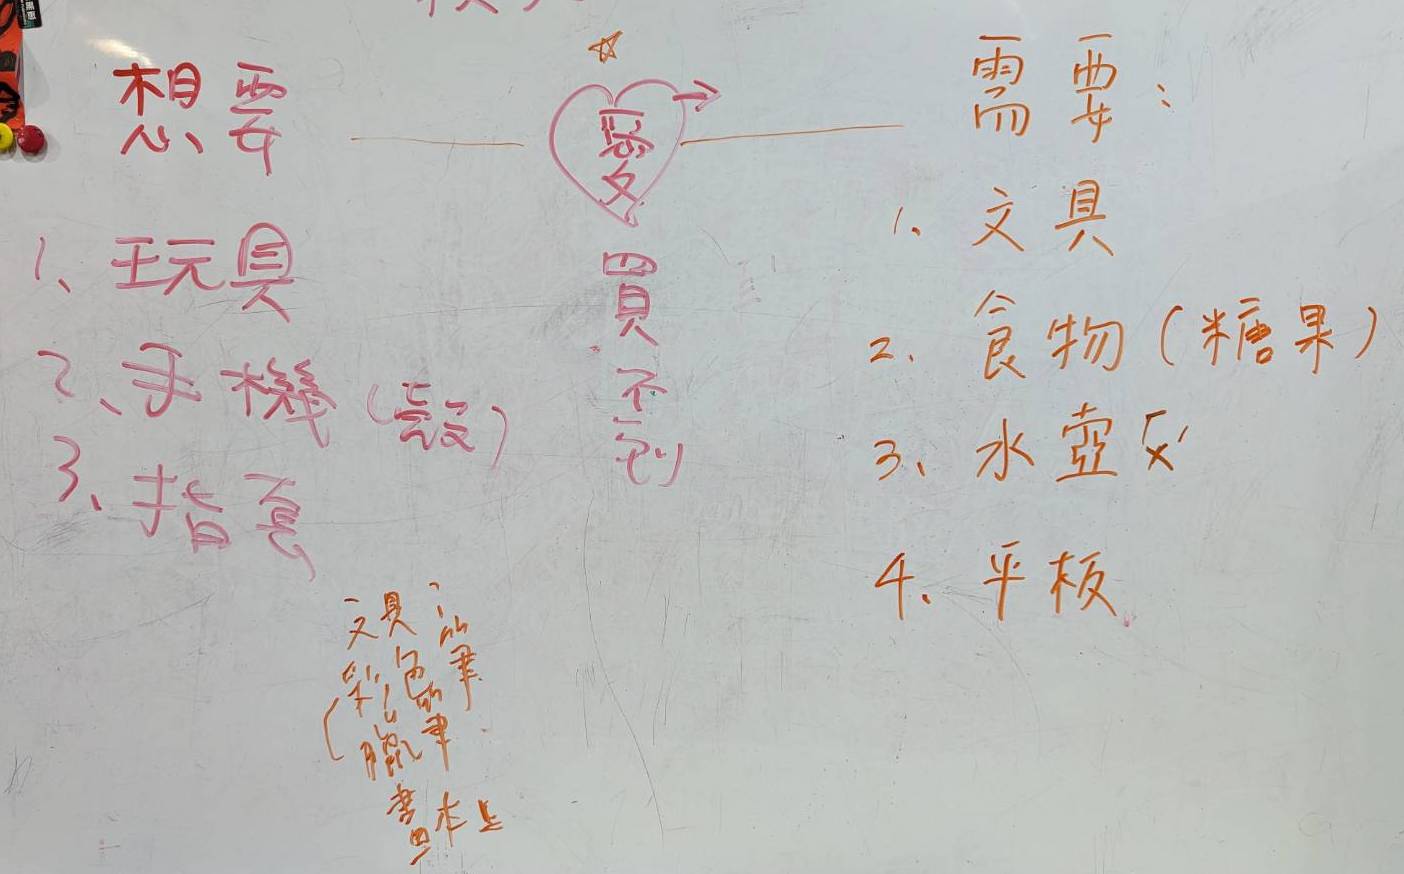 想要
1、玩具
2、手機(殼)
3、指套
愛
買不到
需要：
1、文具
2、食物(糖果)
3、水壺
4、平板
文具：
彩色筆
臘筆
書本